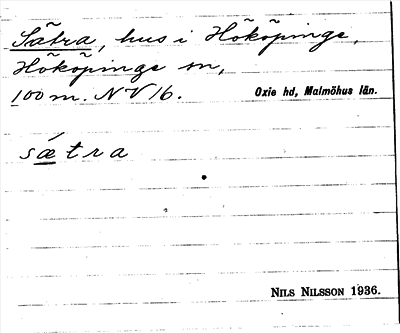 Sätra, hus i Hököpinge,
Hököpinge sn,
100 m. NV 16.
Oxie hd, Malmöhus län.
sætra
NILS NILSSON 1936.